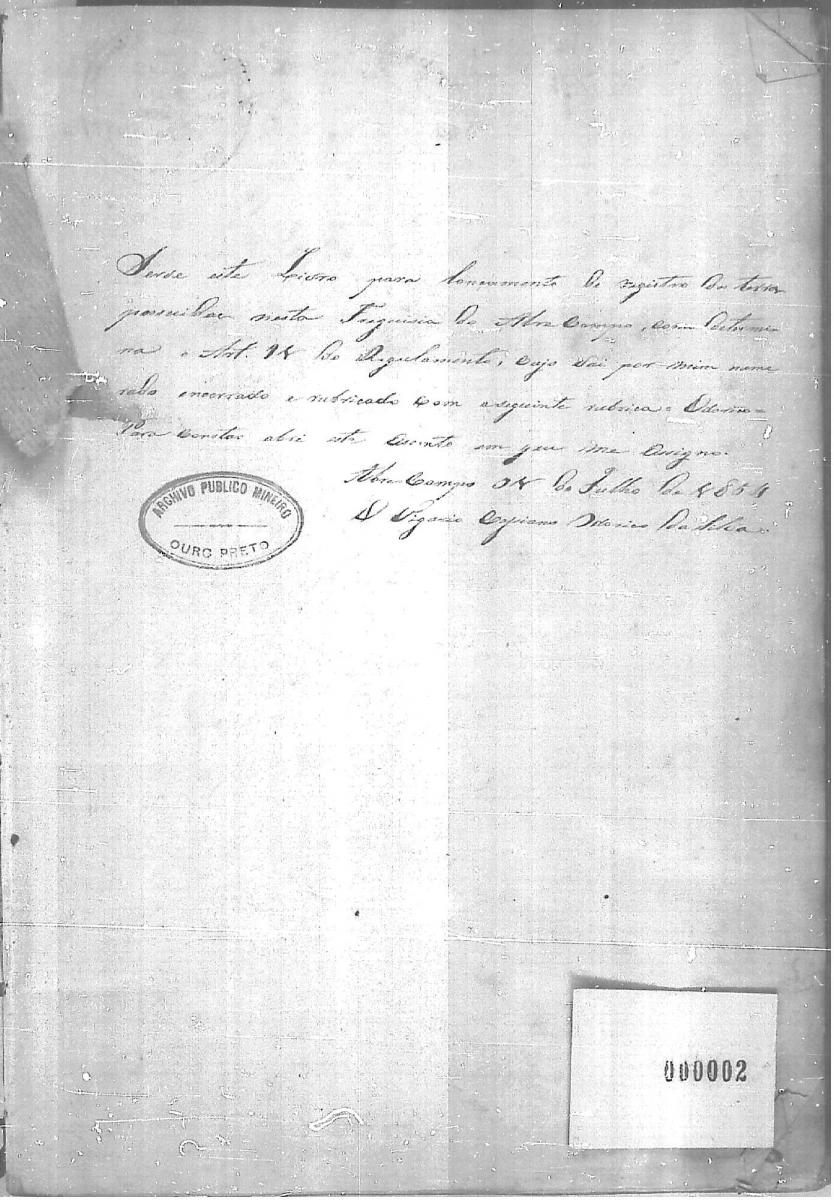 Serve este Livro para lancamento do registro das terras
possuidas nesta Freguisia do Abre Campo, com determi
na o Art. do Regulamento, cujo vai por mim nume
rado encerrado e rubricado com a seguinte rubrica = Odorico =
Para constar abri este em que me assigno.
Abre Campo de Julho de 1854
O Vigario Cypriano Odorico da Silva
ARCHIVO PUBLICO MINEIRO
OURO PRETO
000002